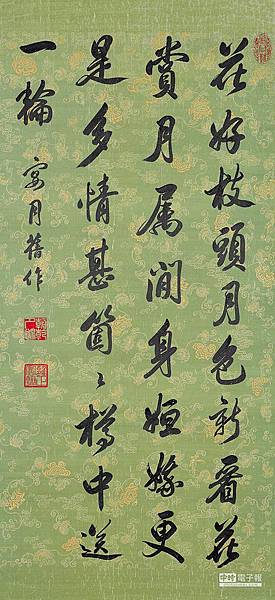 花好枝頭月色新看花
賞月属閒身姮娥更
是多情甚箇〻樽中送
一輪
宴月舊作
中時電子報